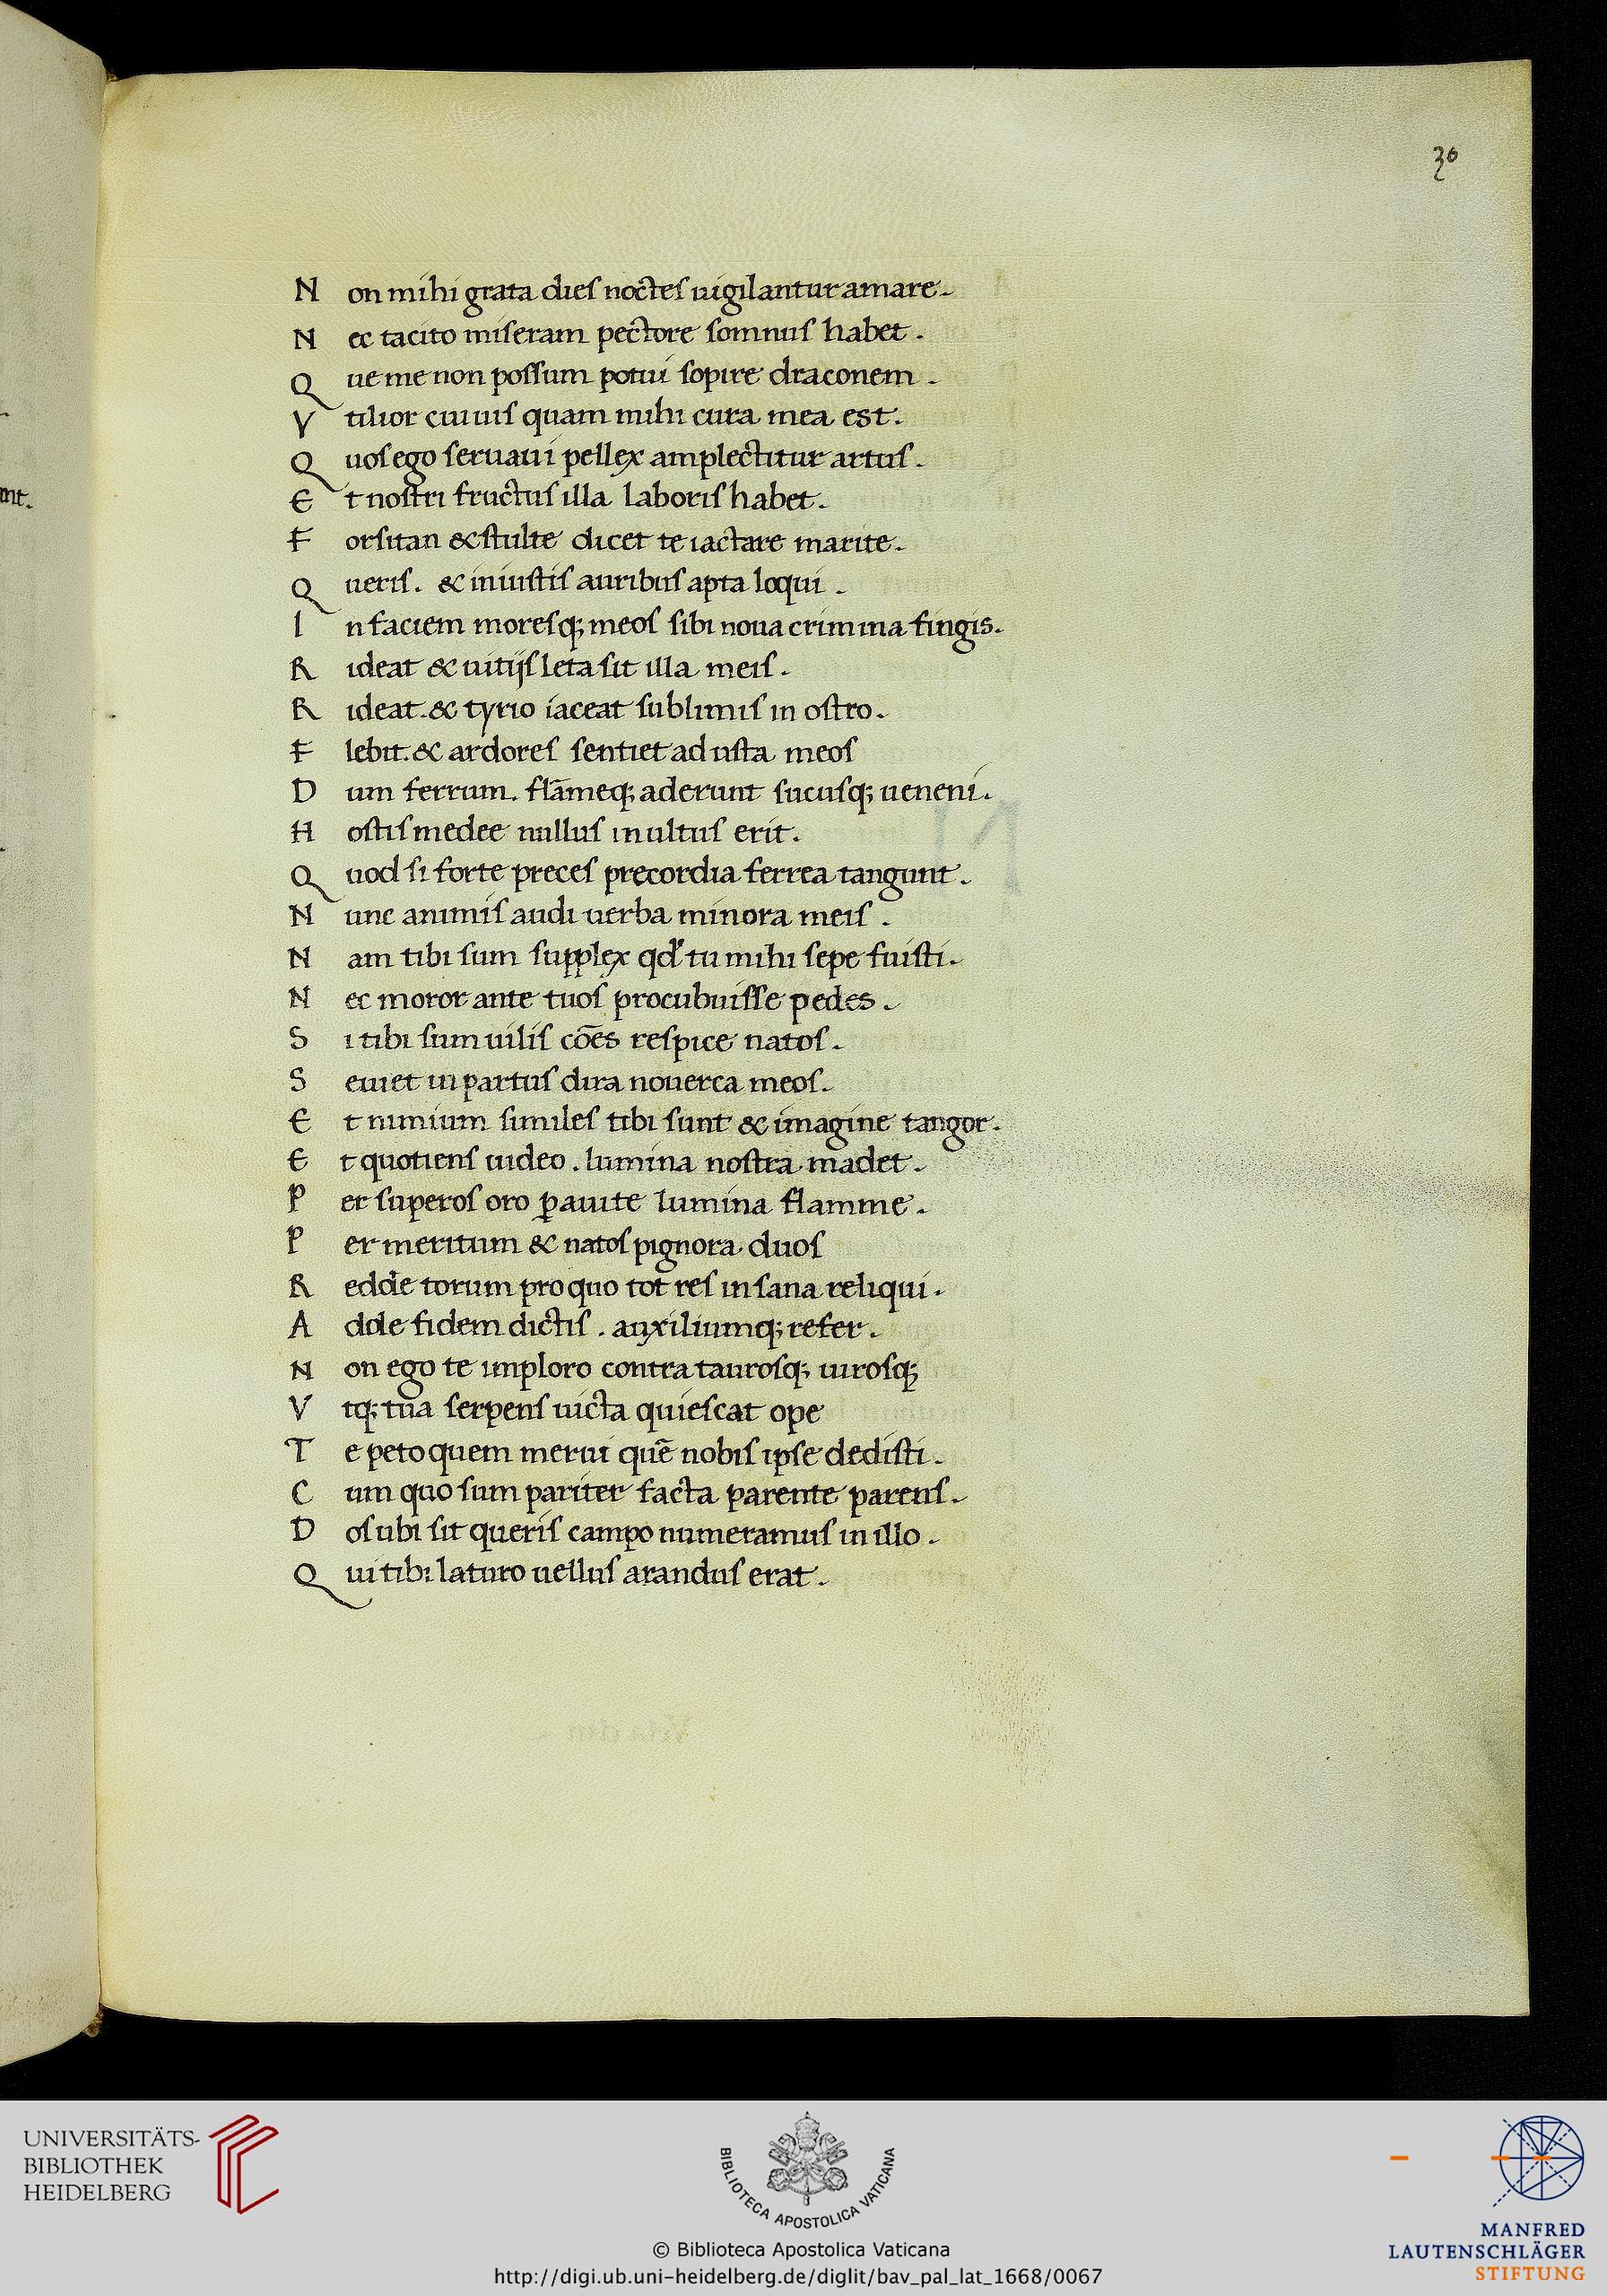 30
N on mihi grata dies noctes uigilantur amare.
N ec tacito miseram pectore somnus habet.
Q ue me non possum potui sopire draconem.
V tilior cuiuis quam mihi cura mea est.
Q uos ego seruaui pellex amplectitur artus.
E t nostri fructus illa laboris habet.
F orsitan & stulte dicet te iactare marite.
Q ueris. & iniustis auribus apta loqui.
I n faciem moresq; meos sibi noua crimina fingis.
R ideat & uitijs leta sit illa meis.
R ideat. & tyrio iaceat sublimis in ostro.
F lebit. & ardores sentiet adusta meos
D um ferrum. flāmeq; aderunt sucusq; ueneni.
H ostis medee nullus inultus erit.
Q uod si forte preces precordia ferrea tangunt.
N unc animis audi uerba minora meis.
N am tibi sum supplex qd' tu mihi sepe fuisti.
N ec moror ante tuos procubuisse pedes.
S i tibi sum uilis cōes respice natos.
S euiet in partus dira nouerca meos.
E t nimium similes tibi sunt & imagine tangor.
E t quotiens uideo. lumina nostra madet.
P er superos oro ꝑ auite lumina flamme.
P er meritum & natos pignora duos
R edde torum pro quo tot res insana reliqui.
A dde fidem dictis. auxiliumq; refer.
N on ego te imploro contra taurosq; uirosq;
V tq; tua serpens uicta quiescat ope
T e peto quem merui quē nobis ipse dedisti.
C um quo sum pariter facta parente parens.
D os ubi sit queris campo numeramus in illo.
Q ui tibi laturo uellus arandus erat.
UNIVERSITÄTS-
BIBLIOTHEK
HEIDELBERG
BIBLIOTECA APOSTOLICA VATICANA
© Biblioteca Apostolica Vaticana
http://digi.ub.uni-heidelberg.de/diglit/bav_pal_lat_1668/0067
MANFRED
LAUTENSCHLÄGER
STIFTUNG